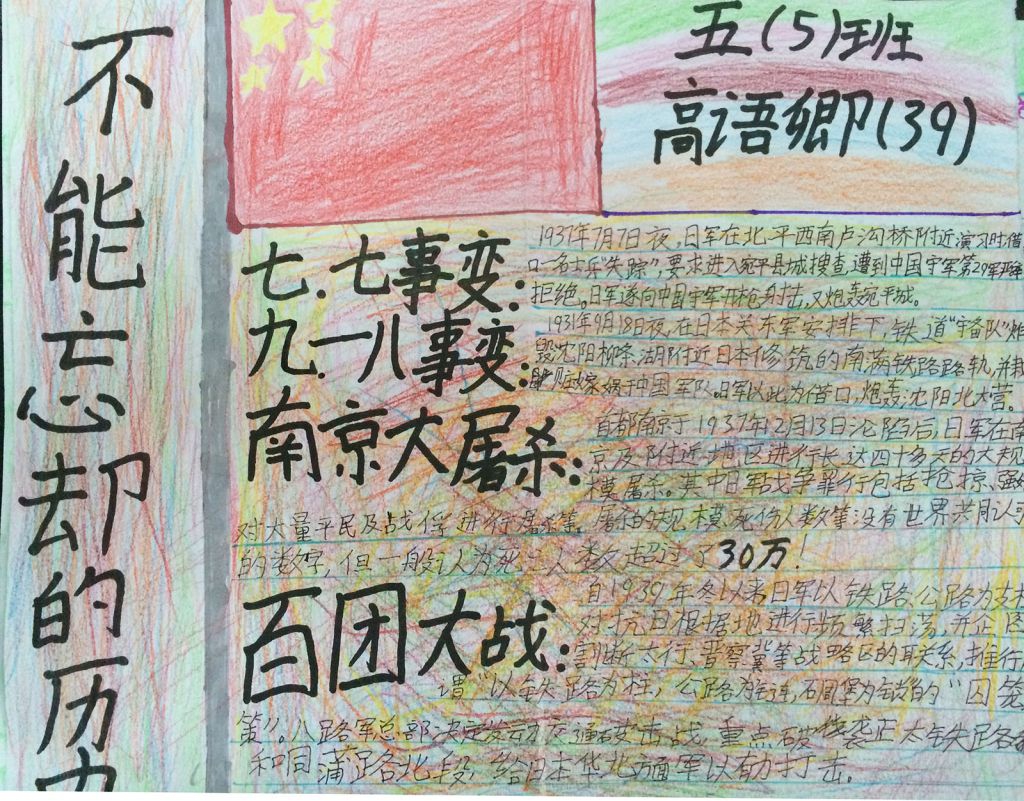 不能忘却的历
五(5)班
高语卿(39)
七.七事变:
1937年7月7日夜,日军在北平西南卢沟桥附近演习时借
口一名士兵"失踪",要求进入宛平县城搜查,遭到中国守军第29军
拒绝。日军遂向中国守军开枪射击,又炮轰宛平城。
九一八事变:
1931年9月18日夜,在日本关东军安排下,铁道"守备队"炸
毁沈阳柳条湖附近日本修筑的南满铁路路轨,并
贼赃嫁祸于中国军队。日军以此为借口,炮轰沈阳北大营。
南京大屠杀:
首都南京于1937年12月13日沦陷后,日军在南
京及附近地区进行长达四十多天的大规
模屠杀。其中日军战争罪行包括抢掠、强奸
对大量平民及战俘进行屠杀等。屠杀的规模、死伤人数等没有世界共同认可
的数字,但一般认为死亡人数超过了30万!
百团大战:
自1939年冬以来日军以铁路、公路为支柱
对抗日根据地进行频繁扫荡,并企图
割断太行、晋察冀等战略区的联系,推行所
谓"以铁路为柱,公路为链,碉堡为锁"的"囚笼
策"。八路军总部决定发动交通破击战,重点破袭正太铁路
和同蒲路北段,给日本华北方面军以有力打击。